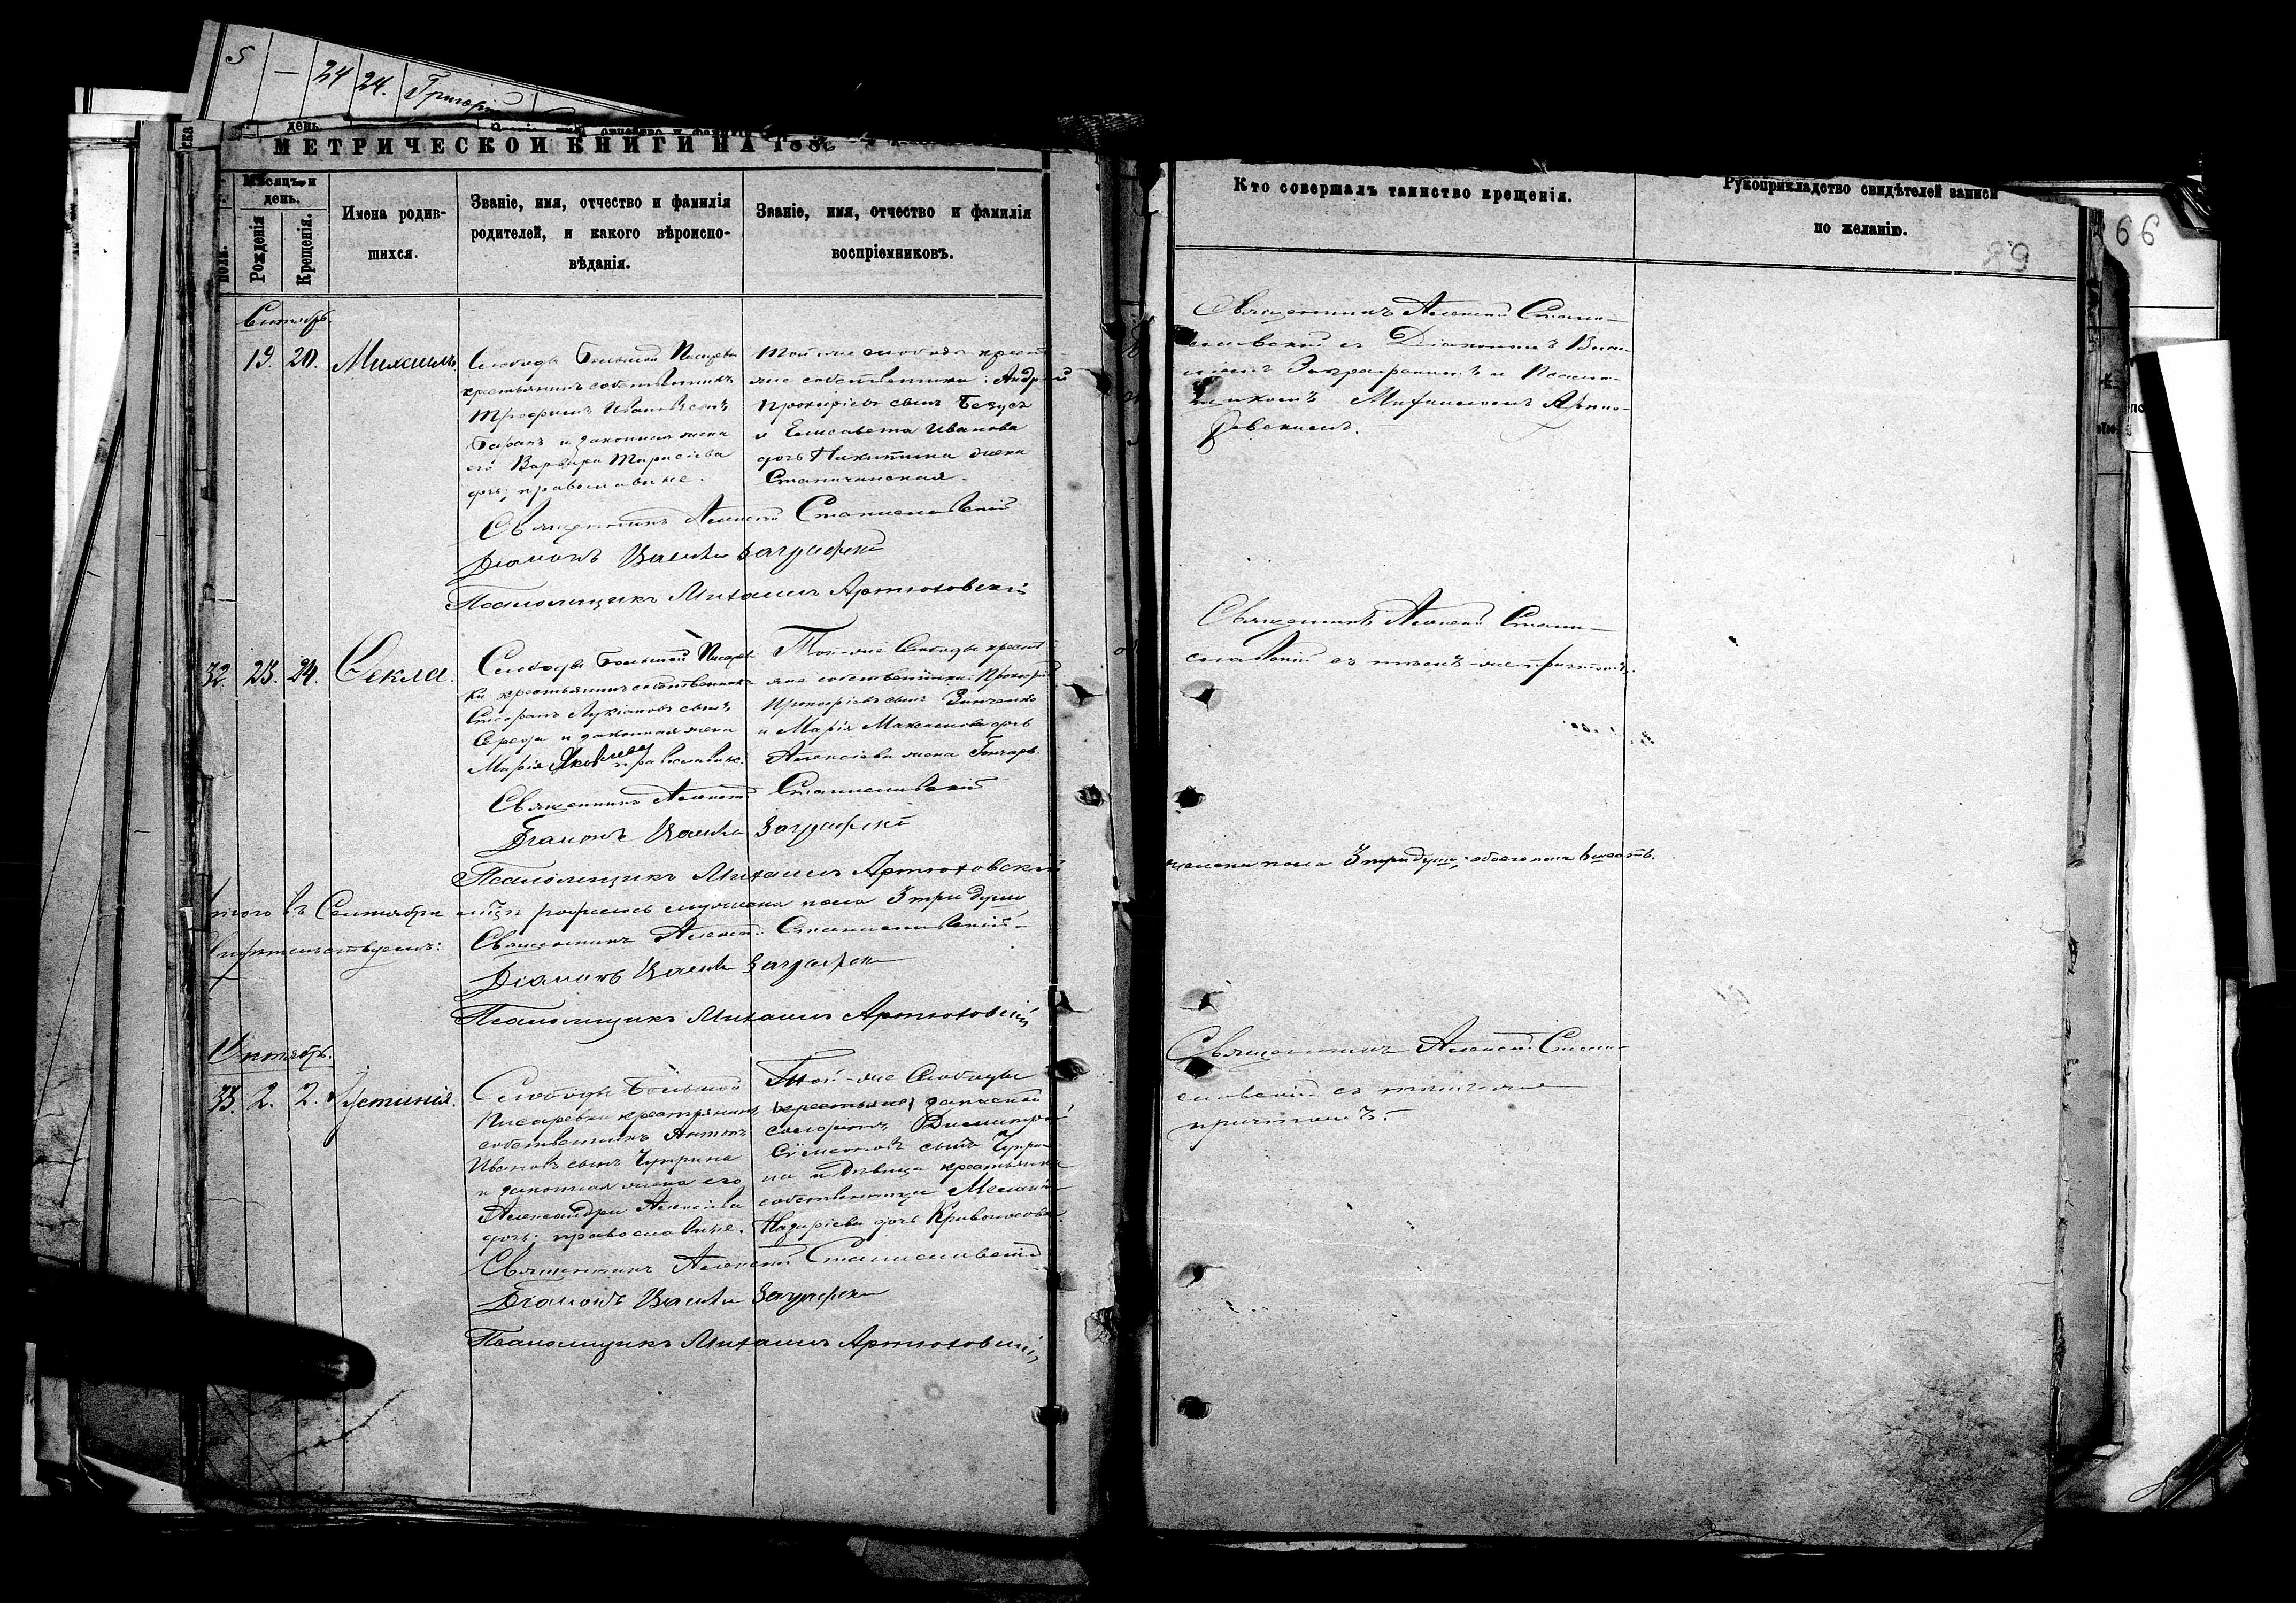 5 — 24 24. Григорій
МЕТРИЧЕСКОЙ КНИГИ НА 1886
Мѣсяцъ и день.
Рожденія
Крещенія.
Имена родившихся.
Званіе, имя, отчество и фамилія
родителей, и какого вѣроиспо-
вѣданія.
Званіе, имя, отчество и фамилія
воспріемниковъ.
Сентябрь.
19. 20. Михаилъ
Слободы Большой Писаревки
крестьянинъ собственникъ
Трофимъ Ивановъ сынъ
и законная жена
его Варвара Тарасіева
дочь; православные.
Той же слободы крестья-
не собственники: Андрей
Прокофіевъ сынъ Безусъ
и Елисавета Иванова
дочь Никитина жена
Священникъ Алексій Станиславскій
Діаконъ Василій Заграфскій
Псаломщикъ Михаилъ Артюховскій
32. 23. 24. Ѳекла.
Слободы Большой Писарев-
ки крестьянинъ собственникъ
Стефанъ Лукіановъ сынъ
Середа и законная жена
Марія Яковлева православные.
Той-же Слободы крестья-
не собственники: Прокофій
Прокофіевъ сынъ Зинченко
и Марія Максимова дочь
Алексіева жена Гончаръ.
Священникъ Алексій Станиславскій
Діаконъ Василій Заграфскій
Псаломщикъ Михаилъ Артюховскій
Итого въ Сентябрѣ м-цѣ родилось мужеска пола 3 три души
свидѣтельствуемъ:
Священникъ Алексій Станиславскій
Діаконъ Василій Заграфскій
Псаломщикъ Михаилъ Артюховскій
Октябрь.
33. 2. 2. Устинія.
Слободы Большой
Писаревки крестьянинъ
собственникъ Антонъ
Ивановъ сынъ Чуприна
и законная жена его
Александра Алексіева
дочь; православные.
Той-же Слободы
крестьяне, запасный
солдатъ Димитрій
Симеоновъ сынъ Чупри-
на и дѣвица крестьянка
собственница Меланія
Назаріева дочь Кривоносова.
Священникъ Алексій Станиславскій
Діаконъ Василій Заграфскій
Псаломщикъ Михаилъ Артюховскій
Кто совершалъ таинство крещенія.
Рукоприкладство свидѣтелей записи
по желанію.
89
66
Священникъ Алексій Стани-
славскій съ Діакономъ Васи-
ліемъ Заграфскимъ и Псалом-
щикомъ Михаиломъ Артю-
ховскимъ.
Священникъ Алексій Стани-
славскій съ тѣмъ-же причтомъ.
женска пола 3 три души, обоего пола 6 шесть.
Священникъ Алексій Стани-
славскій съ тѣмъ-же
причтомъ